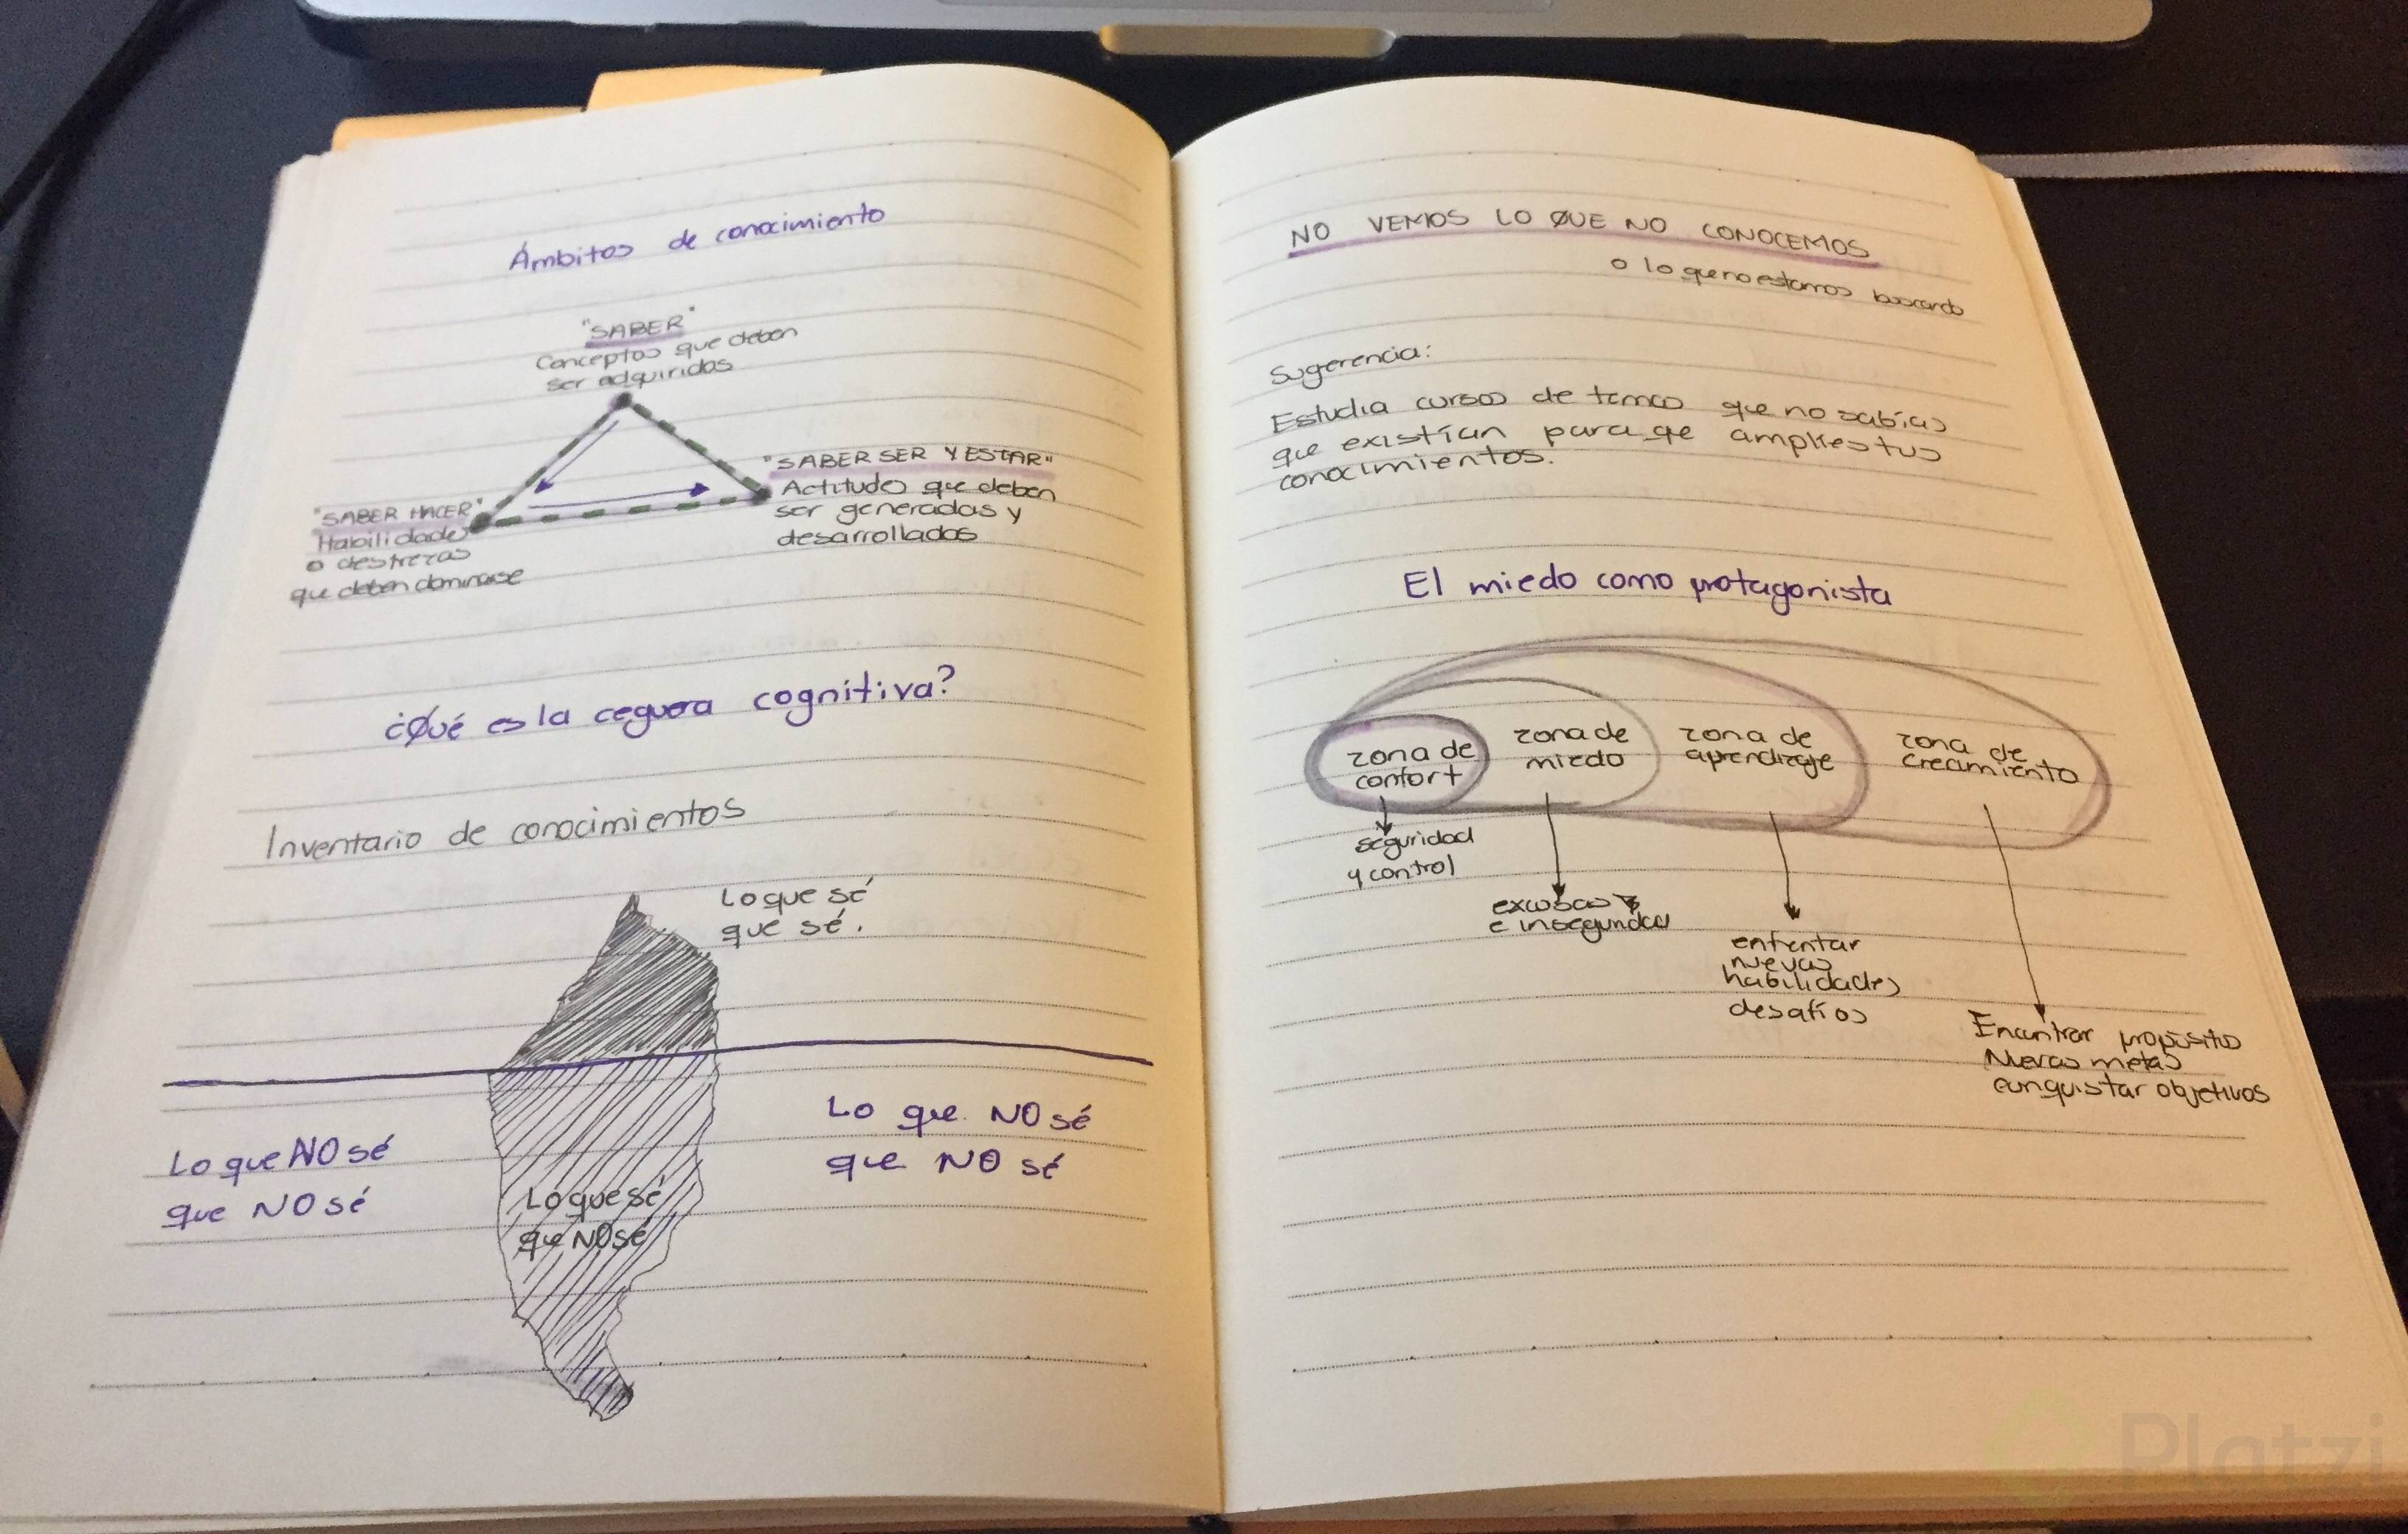 Ámbitos de conocimiento
"SABER"
Conceptos que deben
ser adquiridos
"SABER HACER"
Habilidades
o destrezas
que deben dominarse
"SABER SER Y ESTAR"
Actitudes que deben
ser generadas y
desarrollados
¿Qué es la ceguera cognitiva?
Inventario de conocimientos
Lo que sé
que sé.
Lo que NO sé
que NO sé
Lo que sé
que NO sé
Lo que NO sé
que NO sé
NO VEMOS LO QUE NO CONOCEMOS
o lo que no estamos buscando
Sugerencia:
Estudia cursos de temas que no sabías
que existían para qe amplies tus
conocimientos.
El miedo como protagonista
zona de
confort
zona de
miedo
zona de
aprendizaje
zona de
crecimiento
seguridad
y control
excusas
e inseguridad
enfentar
nuevas
habilidades
desafíos
Encontrar propósito
Nuevas metas
conquistar objetivos
Platzi